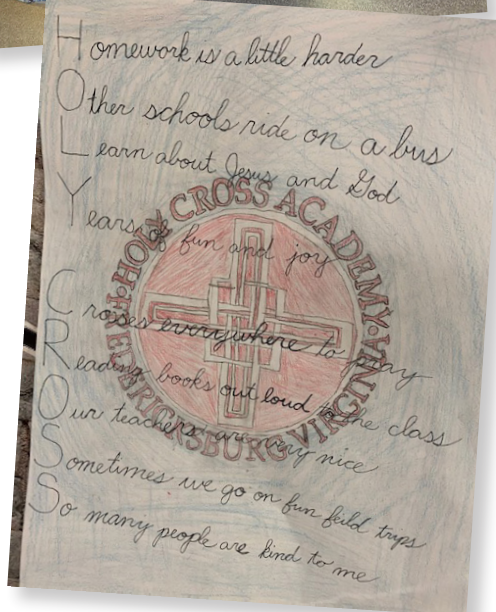 Homework is a little harder
Other schools ride on a bus
Learn about Jesus and God
Years of fun and joy
Crosses everywhere to pray
Reading books out loud to the class
Our teachers are very nice
Sometimes we go on fun feild trips
So many people are kind to me
HOLY CROSS ACADEMY · FREDERICKSBURG VIRGINIA ·